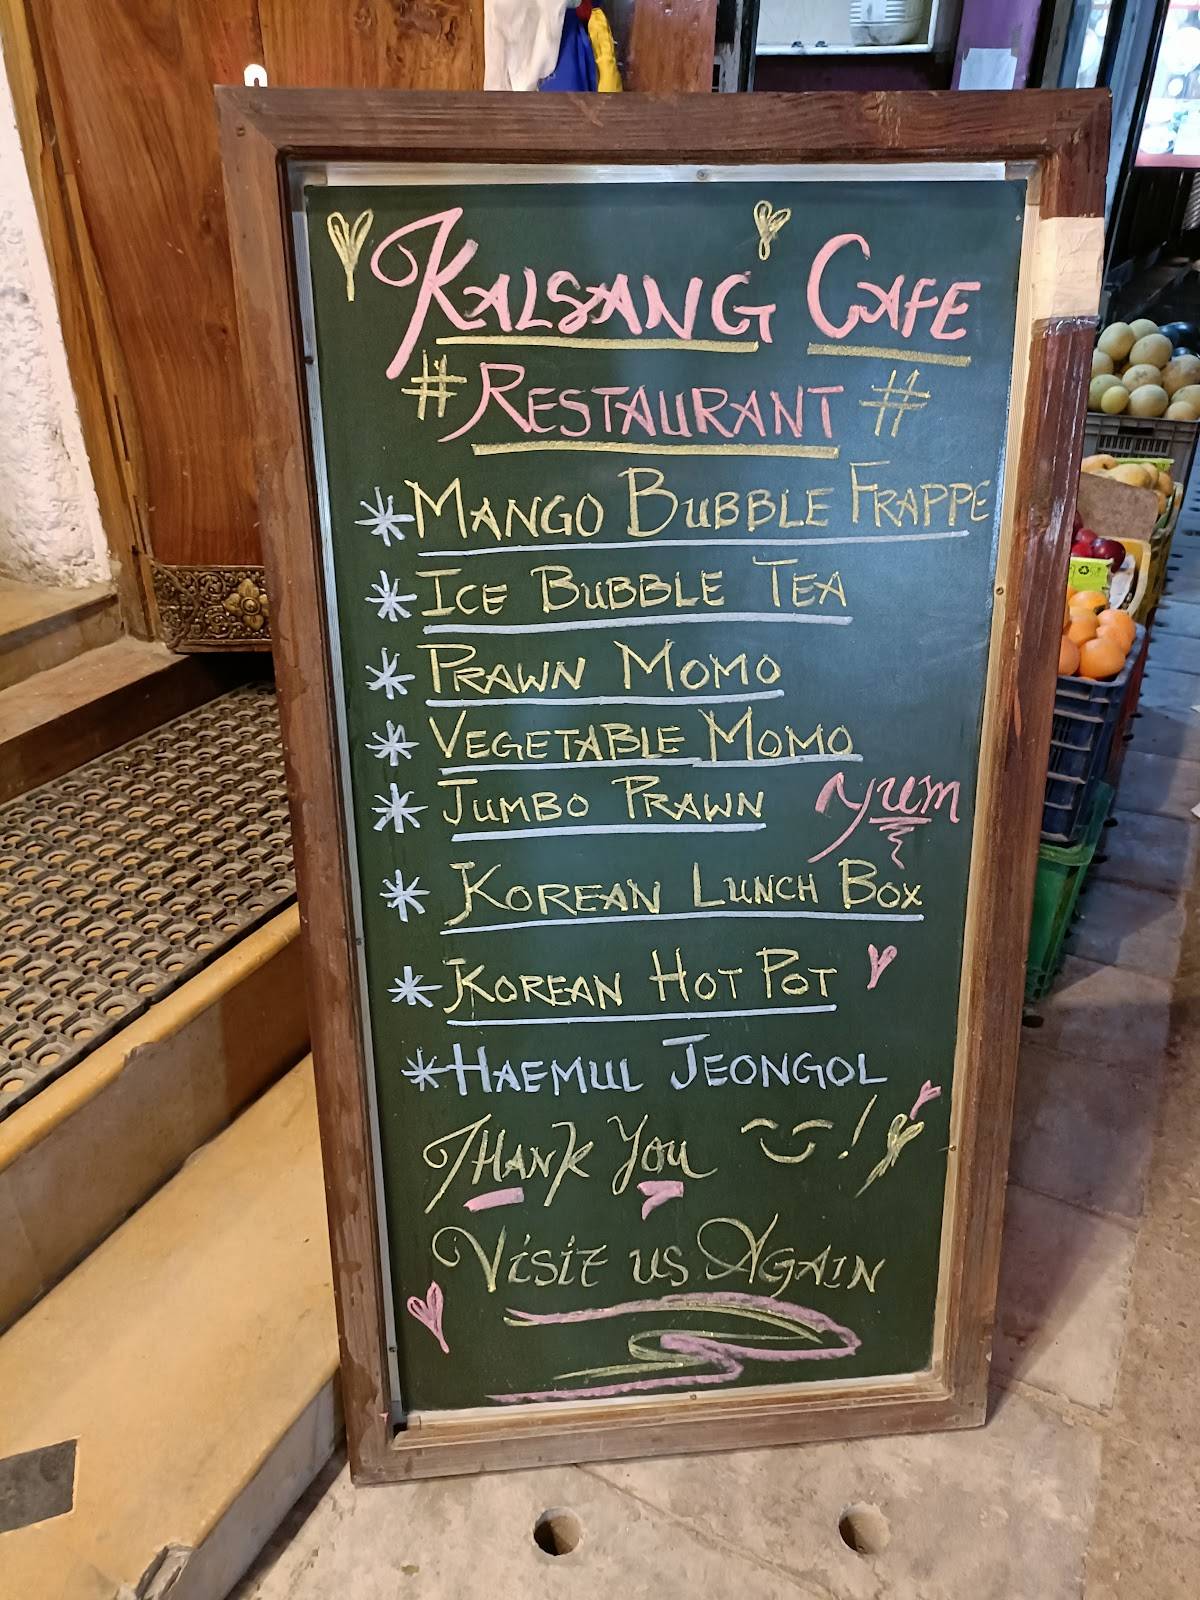 Kalsang Cafe
# Restaurant #
* Mango Bubble Frappe
* Ice Bubble Tea
* Prawn Momo
* Vegetable Momo
* Jumbo Prawn yum
* Korean Lunch Box
* Korean Hot Pot
* Haemul Jeongol
Thank You !
Visit us Again